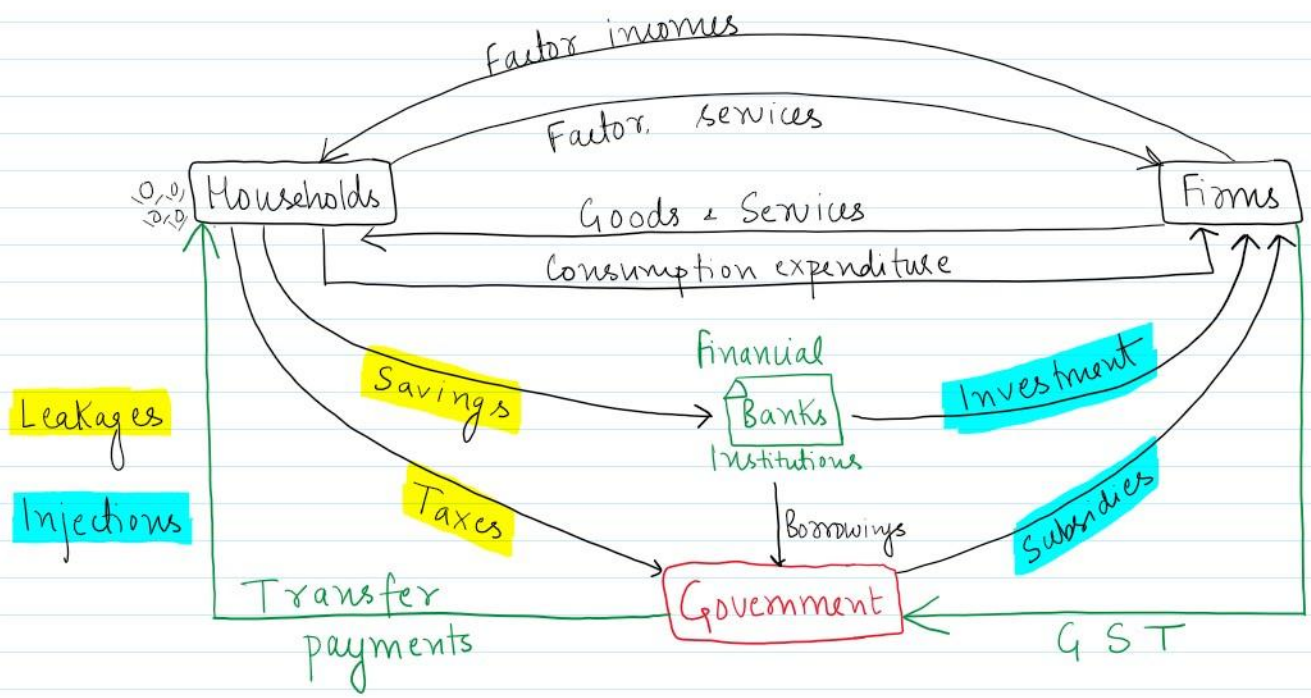 Factor incomes
Factor services
Households
Firms
Goods & Services
Consumption expenditure
Financial
Banks
Institutions
Savings
Investment
Leakages
Taxes
Injections
Borrowings
Subsidies
Government
Transfer
payments
GST